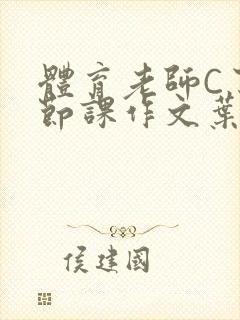 體育老師C
節課作文葉
侯建國